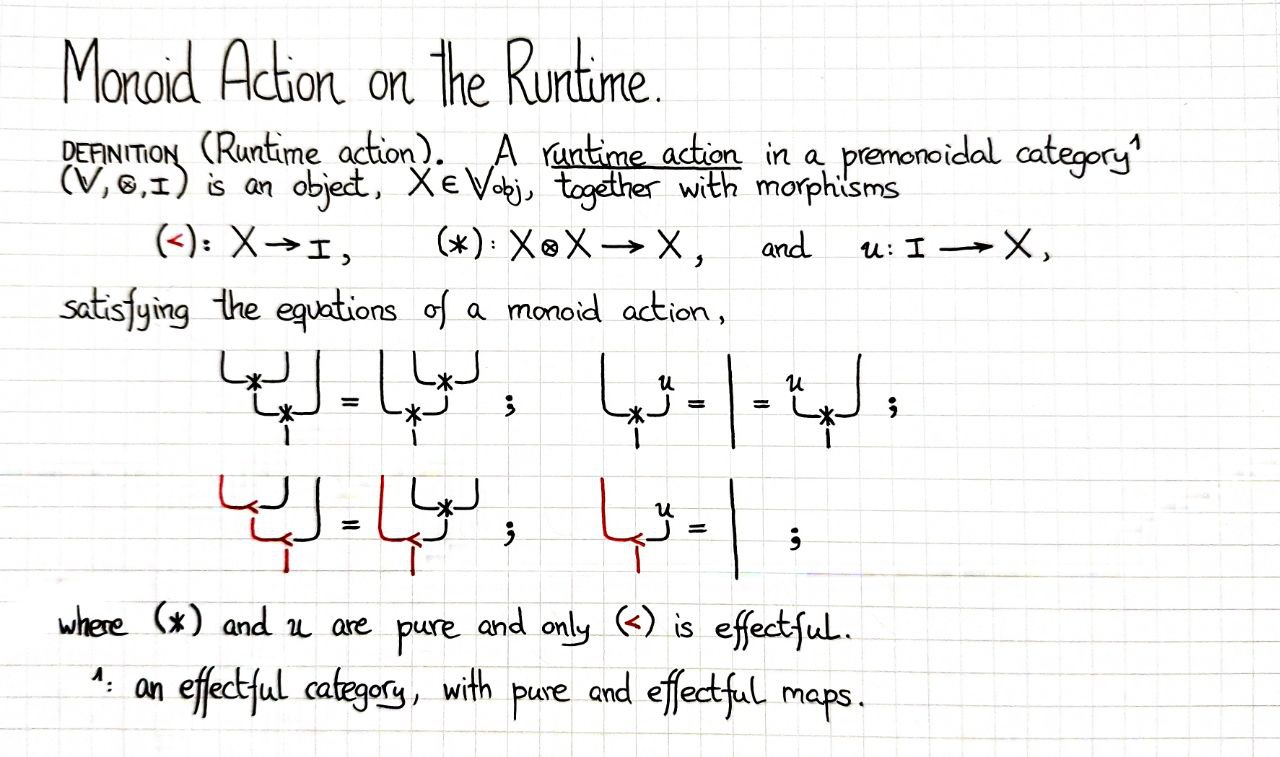 Monoid Action on the Runtime.
DEFINITION (Runtime action). A runtime action in a premonoidal category¹
(V, ⊗, I) is an object, X ∈ V obj, together with morphisms
(<): X → I, (*): X ⊗ X → X, and u: I → X,
satisfying the equations of a monoid action,
* * = * * ; * u = = u * ;
< < = < * ; < u = ;
where (*) and u are pure and only (<) is effectful.
¹: an effectful category, with pure and effectful maps.